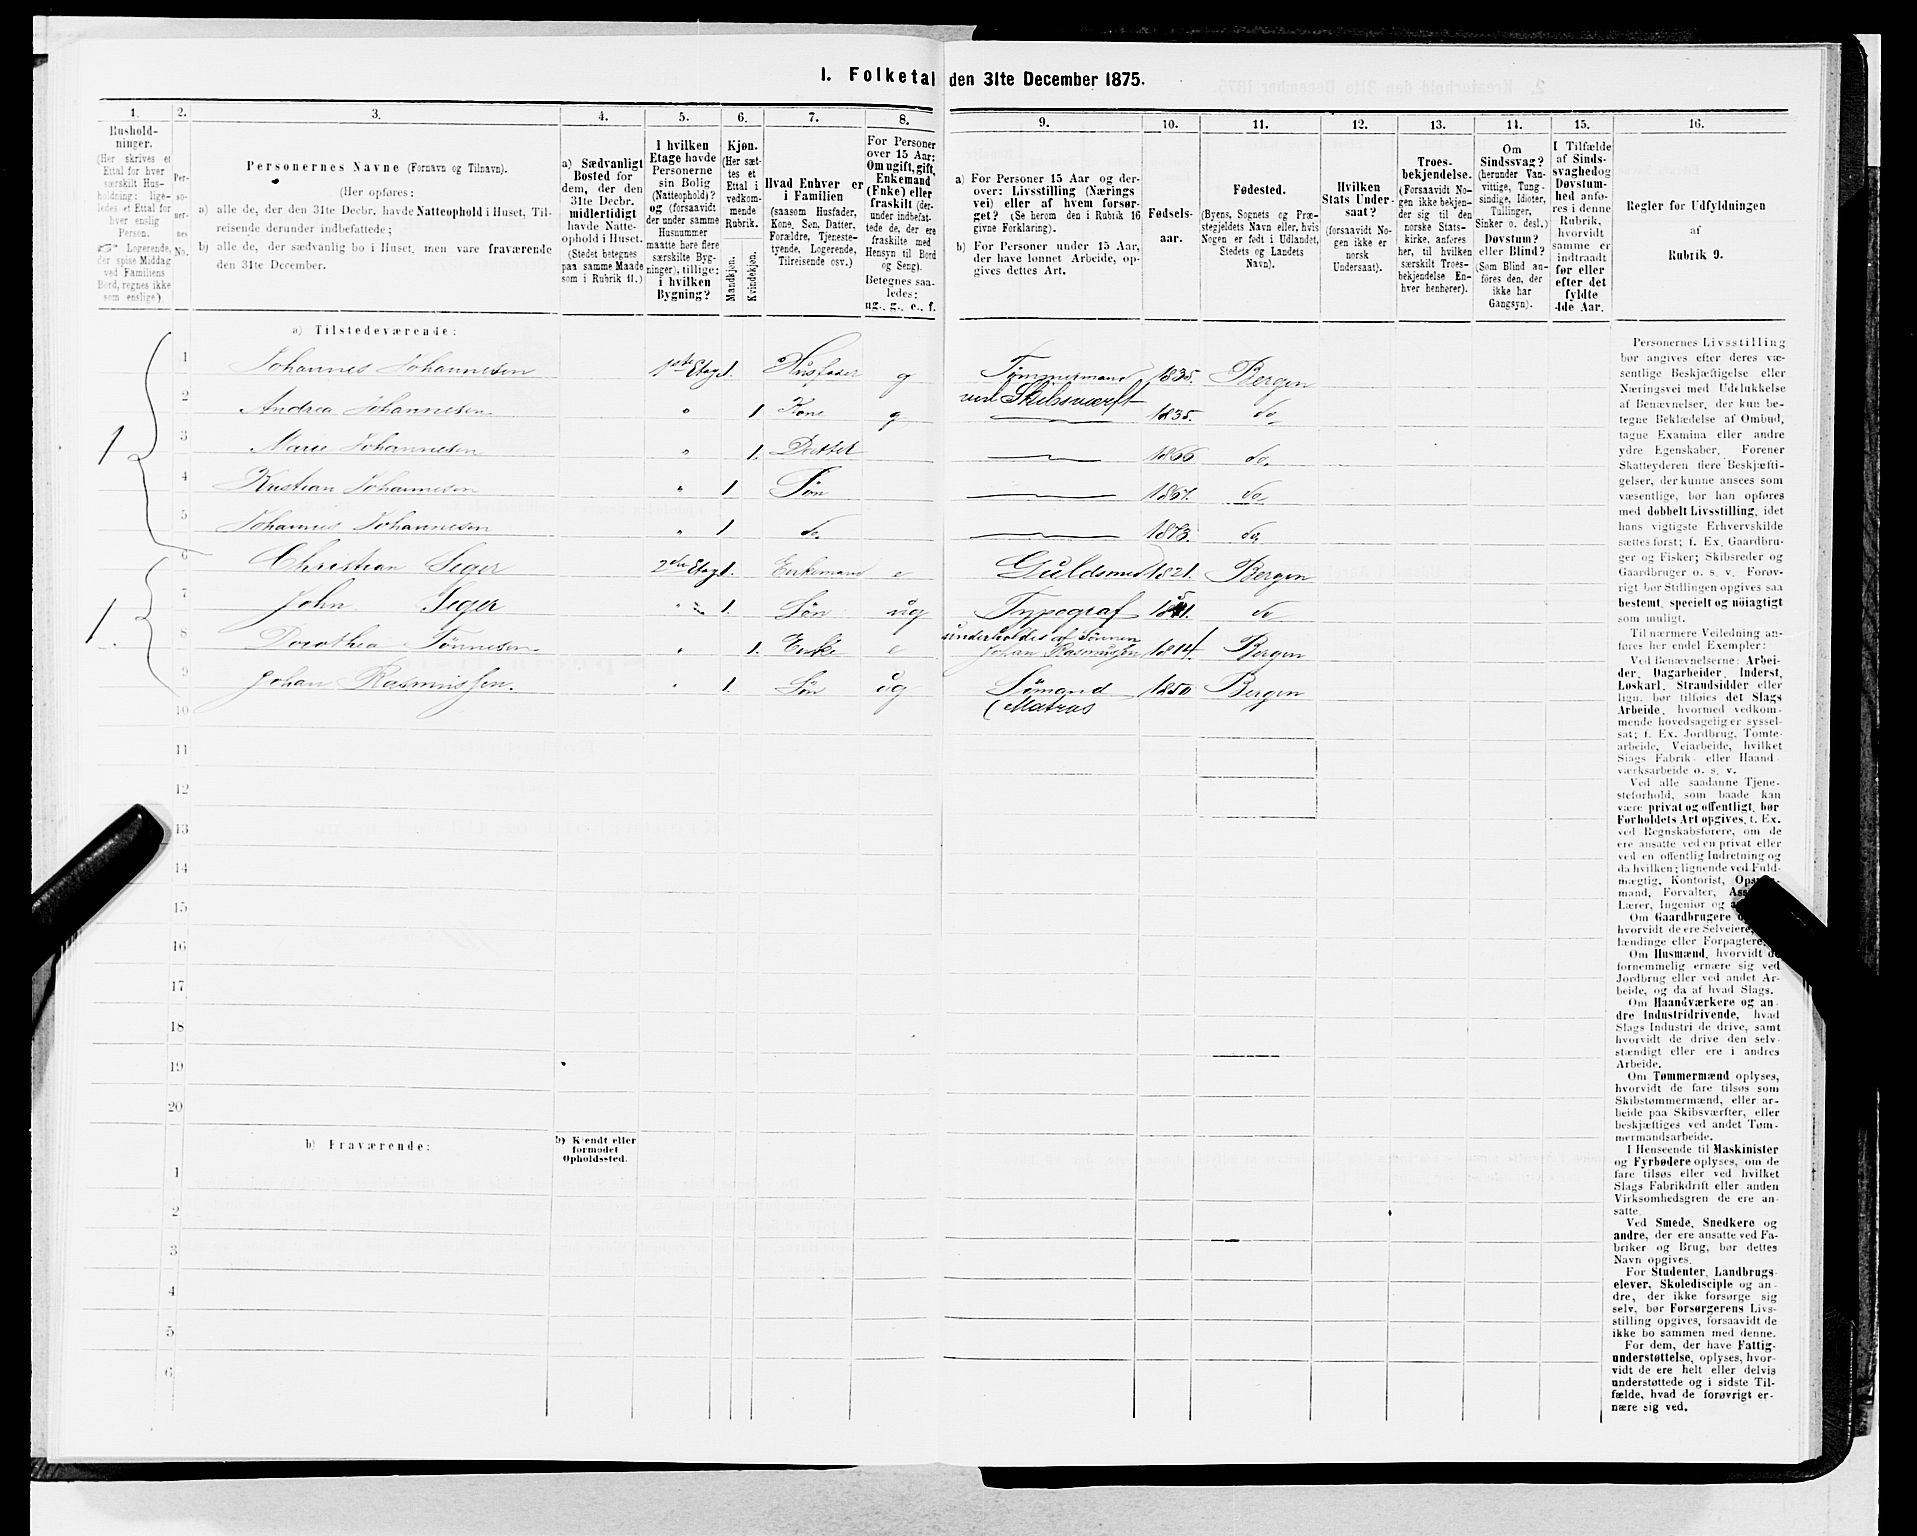 1. Folketal den 31te December 1875.
1. 2. 3. 4. 5. 6. 7. 8. 9. 10. 11. 12. 13. 14. 15. 16.
Hushold-
ninger.
(Her skrives et
Ettal for hver
særskilt Hus-
holdning; lige-
ledes et Ettal for
hver enslig
Person.
☞ Logerende,
der spise Middag
ved Familiens
Bord, regnes ikke
som enslige.)
Per-
so-
ner-
nes
No.
Personernes Navne (Fornavn og Tilnavn).
(Her opføres:
a) alle de, der den 31te Decbr. havde Natteophold i Huset, Til-
reisende derunder indbefattede;
b) alle de, der sædvanlig bo i Huset, men vare fraværende
den 31te December.
a) Sædvanligt
Bosted for
dem, der den
31te Decbr.
midlertidigt
havde Natte-
ophold i Huset.
(Stedet betegnes
paa samme Maade
som i Rubrik 11.)
I hvilken
Etage havde
Personerne
sin Bolig
(Natteophold)?
og (forsaavidt
der under samme
Husnummer
maatte høre flere
særskilte Byg-
ninger), tillige:
i hvilken
Bygning?
Kjøn.
(Her sæt-
tes et
Ettal i
vedkom-
mende
Rubrik.
Mandkjøn.
Kvindekjøn.
Hvad Enhver er
i Familien
(saasom Husfader,
Kone, Søn, Datter,
Forældre, Tjeneste-
tyende, Logerende,
Tilreisende osv.)
For Personer
over 15 Aar:
Om ugift, gift,
Enkemand
(Enke) eller
fraskilt (der-
under indbefat-
tede de, der ere
fraskilte med
Hensyn til Bord
og Seng).
Betegnes saa-
ledes:
ug., g., e., f.
a) For Personer 15 Aar og der-
over: Livsstilling (Nærings
vei) eller af hvem forsør-
get? (Se herom den i Rubrik 16
givne Forklaring).
b) For Personer under 15 Aar,
der have lønnet Arbeide, op-
gives dettes Art.
Fødsels-
aar.
Fødested.
(Byens, Sognets og Præ-
stegjeldets Navn eller, hvis
Nogen er født i Udlandet,
Stedets og Landets
Navn).
Hvilken
Stats Under-
saat?
(forsaavidt No-
gen ikke er
norsk
Undersaat).
Troes-
bekjendelse.
(Forsaavidt No-
gen ikke bekjen-
der sig til den
norske Stats-
kirke, anføres
her, til hvilken
særskilt Troes-
bekjendelse En-
hver henhører).
Om
Sindssvag?
(herunder Van-
vittige, Tung-
sindige, Idioter,
Tullinger,
Sinker o. desl.)
Døvstum?
eller Blind?
(Som Blind an-
føres den, der
ikke har
Gangsyn).
I Tilfælde
af Sinds-
svaghed og
Døvstum-
hed anfø-
res i denne
Rubrik,
hvorvidt
samme er
indtraadt
før eller
efter det
fyldte
4de Aar.
Regler for Udfyldningen
af
Rubrik 9.
a) Tilstedeværende:
1 Johannes Johannesen 1ste Etage 1. Husfader g Tømmermand 1835. Bergen
ved Skibsværft
2 Andrea Johannesen " 1 Kone g 1835. do
3 Marie Johannesen " 1. Datter 1866 do.
1
4 Kristian Johannesen " 1 Søn 1867. do
5 Johannes Johannesen " 1 do. 1873. do,
6 Christian Seger 2den Etage 1. Enkemand e Guldsmed 1821. Bergen
7 John Seger " 1. Søn ug Typograf do
1.
underholdes af Sønnen
8 Dorothea Tønnesen " 1. Enke e Johan Rasmussen 1814. Bergen
9 Johan Rasmussen. " 1. Søn ug Sømand 1850 Bergen
(Matros
10
11
12
13
14
15
16
17
18
19
20
b) Fraværende:
b) Kjendt eller
formodet
Opholdssted.
1
2
3
4
5
6
Personernes Livsstilling
bør angives efter deres væ-
sentlige Beskjæftigelse eller
Næringsvei med Udelukkelse
af Benævnelser, der kun be-
tegne Beklædelse af Ombud,
tagne Examina eller andre
ydre Egenskaber. Forener
Skatteyderen flere Beskjæfti-
gelser, der kunne ansees som
væsentlige, bør han opføres
med dobbelt Livsstilling, idet
hans vigtigste Erhvervskilde
sættes først; f. Ex. Gaardbru-
ger og Fisker; Skibsreder og
Gaardbruger o. s. v. Forøv-
rigt bør Stillingen opgives saa
bestemt, specielt og nøiagtigt
som muligt.
Til nærmere Veiledning an-
føres her endel Exempler:
Ved Benævnelserne: Arbei-
der, Dagarbeider, Inderst,
Løskarl, Strandsidder eller
lign. bør tilføies det Slags
Arbeide, hvormed vedkom-
mende hovedsagelig er syssel-
sat; f. Ex. Jordbrug, Tomte-
arbeide, Veiarbeide, hvilket
Slags Fabrik- eller Haand
værksarbeide o. s. v.
Ved alle saadanne Tjene-
steforhold, som baade kan
være privat og offentligt, bør
Forholdets Art opgives, t. Ex.
ved Regnskabsførere, om de
ere ansatte ved en privat eller
ved en offentlig Indretning og
da hvilken; lignende ved Fuld-
mægtig, Kontorist,
mand, Forvalter,
Lærer, Ingeniør og
Om Gaardbrugere
hvorvidt de ere Selveiere,
lændinge eller Forpagtere.
Om Husmænd, hvorvidt de
fornemmelig ernære sig ved
Jordbrug eller ved andet Ar-
beide, og da af hvad Slags.
Om Haandværkere og an
dre Industridrivende, hvad
Slags Industri de drive, samt
hvorvidt de drive den selv-
stændigt eller ere i andres
Arbeide.
Om Tømmermænd oplyses,
hvorvidt de fare tilsøs som
Skibstømmermænd, eller ar-
beide paa Skibsværfter, eller
beskjæftiges ved andet Tøm-
mermandsarbeide.
I Henseende til Maskinister
og Fyrbødere oplyses, om de
fare tilsøs eller ved hvilket
Slags Fabrikdrift eller anden
Virksomhedsgren de ere an-
satte.
Ved Smede, Snedkere og
andre, der ere ansatte ved Fa-
briker og Brug, bør dettes
Navn opgives.
For Studenter, Landbrugs-
elever, Skoledisciple og an-
dre, der ikke forsørge sig
selv, bør Forsørgerens Livs-
stilling opgives, forsaavidt de
ikke bo sammen med denne.
For dem, der have Fattig-
understøttelse, oplyses, hvor-
vidt de ere helt eller delvis
understøttede og i sidste Til-
fælde, hvad de forøvrigt er-
nære sig ved.